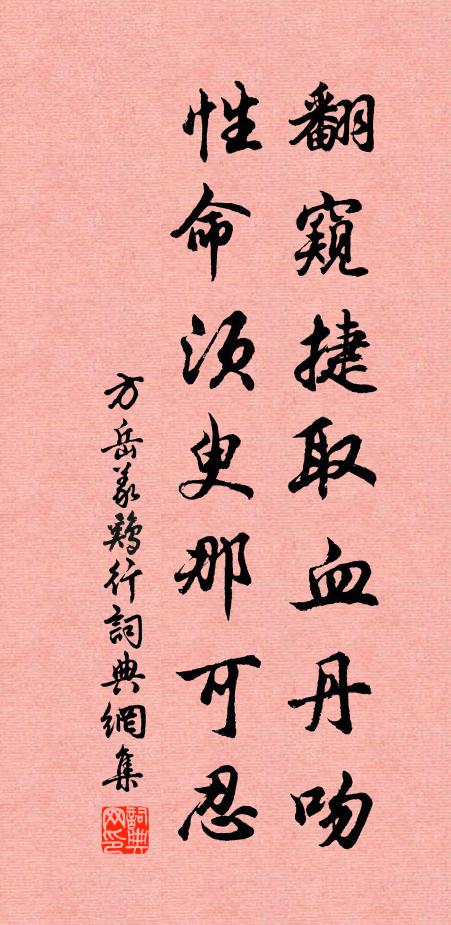 翻窺捷取血丹吻
性命須臾那可忍
方岳義鶏行詞典網集
詞典网印